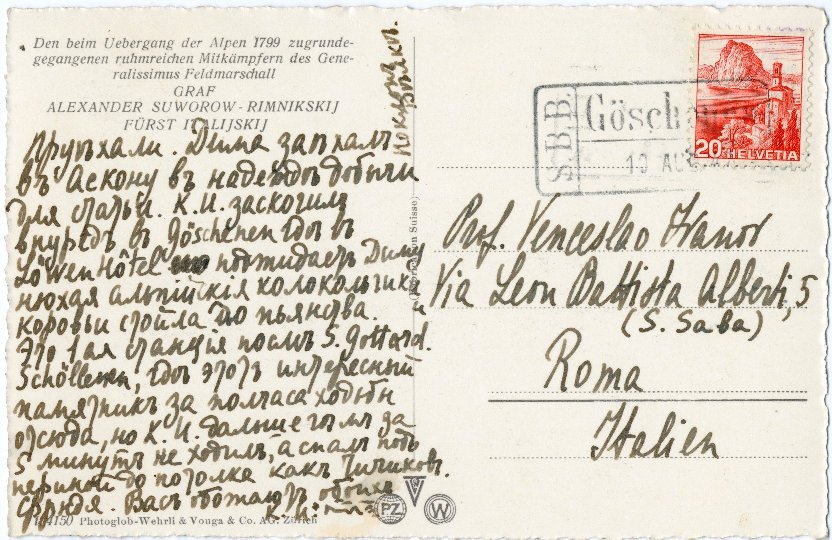 Den beim Uebergang der Alpen 1799 zugrunde-
gegangenen ruhmreichen Mitkämpfern des Gene-
ralissimus Feldmarschall
GRAF
ALEXANDER SUWOROW-RIMNIKSKIJ
FÜRST ITALIJSKIJ
Пріѣхали. Дима заѣхалъ
въ Аскону въ надеждѣ добычи
для статьи. К.И. заскочилъ
впередъ въ Göschenen гдѣ въ
Löwen Hôtel поджидаетъ Диму
нюхая альпійскія колокольчики
коровьи стойла до пьянства.
Это 1ая станція послѣ S. Gottard.
Schöllenen, гдѣ этотъ интересный
памятникъ за полчаса ходьбы
отсюда, но К.И. дальше гдѣ да
5 минутъ не ходилъ, а спалъ подъ
периной до потолка какъ Чичиковъ.
Васъ обожаютъ обоихъ
К.И.
S.B.B.
Göschenen
19 AUG
20 HELVETIA
Prof. Venceslao Ivanov
Via Leon Battista Alberti, 5
(S. Saba)
Roma
Italien
114150 Photoglob-Wehrli & Vouga & Co. AG. Zürich
PZ
V
W